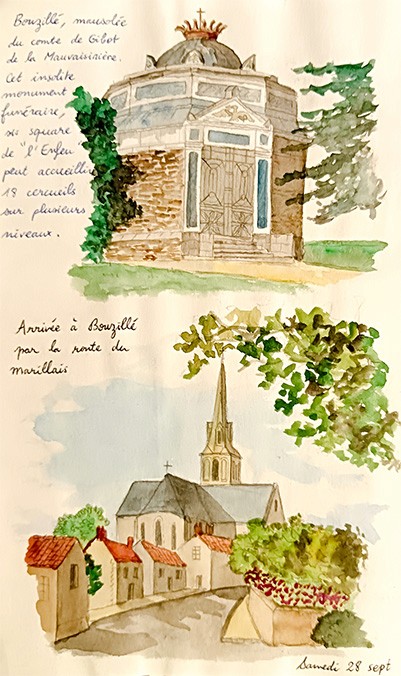 Bouzillé, mausolée
du comte de Gibot
de la Mauvaisinière.
Cet insolite
monument
funéraire,
au square
de "l'Enfeu"
peut accueillir
18 cercueils
sur plusieurs
niveaux.
Arrivée à Bouzillé
par la route du
Marillais
Samedi 28 sept